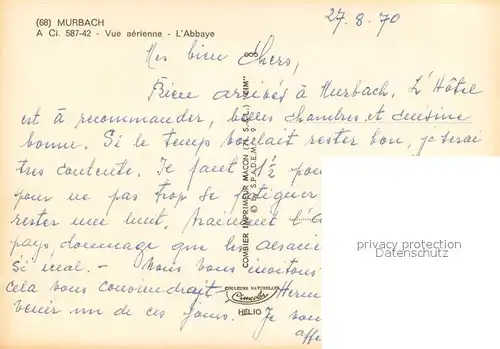 (68) MURBACH
A Ci. 587-42 - Vue aérienne - L'Abbaye
27.8.70
Mes bien Chers,
Bien arrivés à Murbach. L'Hôtel
est à recommander, belles chambres et cuisine
bonne. Si le temps voulait rester bon, je serai
très contente. Il faut 1½
pour ne pas trop se fatiguer
rester une nuit, vraiment l'
pays, dommage que les
si mal. - Nous vous invitons
cela vous conviendrait -
venir un de ces jours. Je vou
affe
COMBIER IMPRIMEUR MACON (71. S.-&-L.) "CIM"
COULEURS NATURELLES
Cimcolor
HELIO
privacy protection
Datenschutz